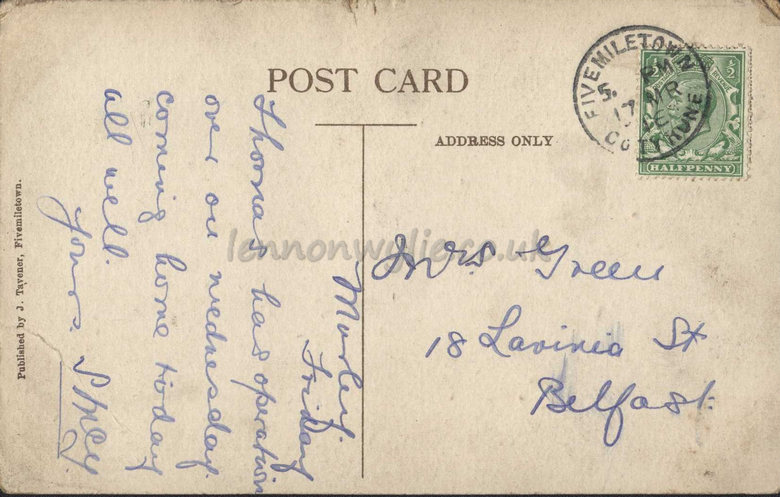 POST CARD
ADDRESS ONLY
FIVEMILETOWN
5. PM
17 MR
CO TYRONE
1/2
1/2
HALFPENNY
Murley.
Friday
Thomas has operation
over on wednesday.
coming home today
all well.
Yours.
Mrs Green
18 Lavinia St
Belfast.
Published by J. Tavener, Fivemiletown.
lennonwylie.co.uk